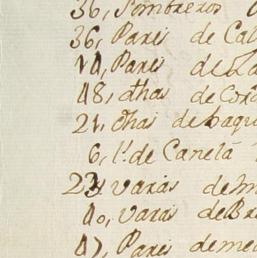 36, Sombreros
36, Pares de Cal
14, Pares de Za
48, dhas de Cord
21, dhas de baqu
6, l.s de Canela
23, varas de
40, varas de Br
42, Pares de me